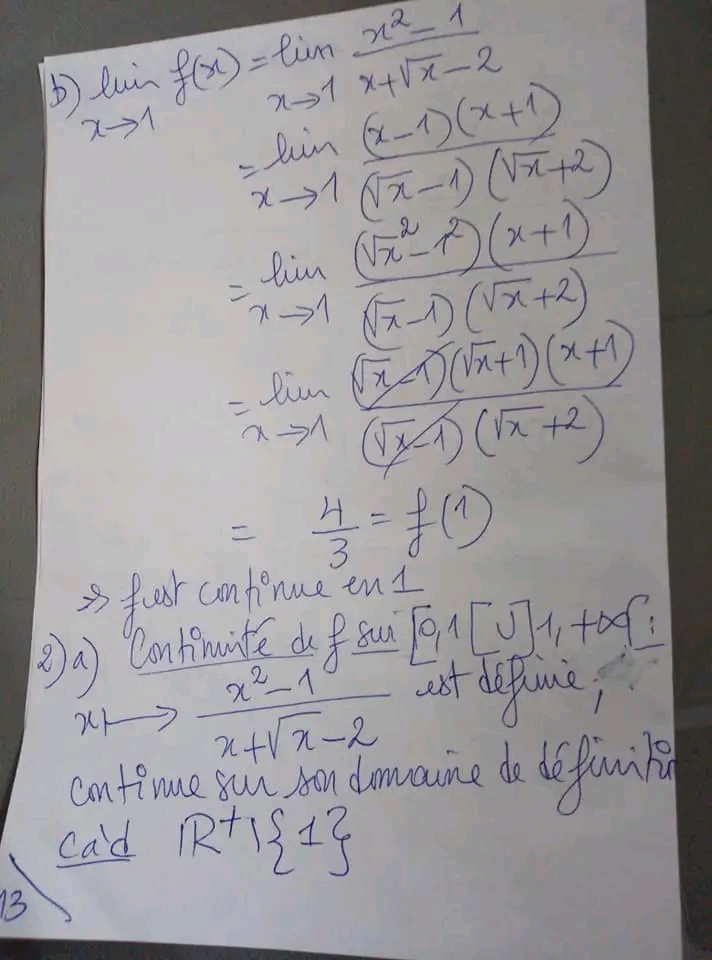 b) lim f(x) = lim x² - 1 / x + √x - 2
x→1 x→1
= lim (x - 1)(x + 1) / (√x - 1)(√x + 2)
x→1
= lim (√x² - 1²)(x + 1) / (√x - 1)(√x + 2)
x→1
= lim (√x - 1)(√x + 1)(x + 1) / (√x - 1)(√x + 2)
x→1
= 4/3 = f(1)
⇒ f est continue en 1
2) a) Continuité de f sur [0,1[ ∪ ]1, +∞[ :
x ↦ x² - 1 / x + √x - 2 est définie,
continue sur son domaine de définition
càd IR⁺\{1}
13